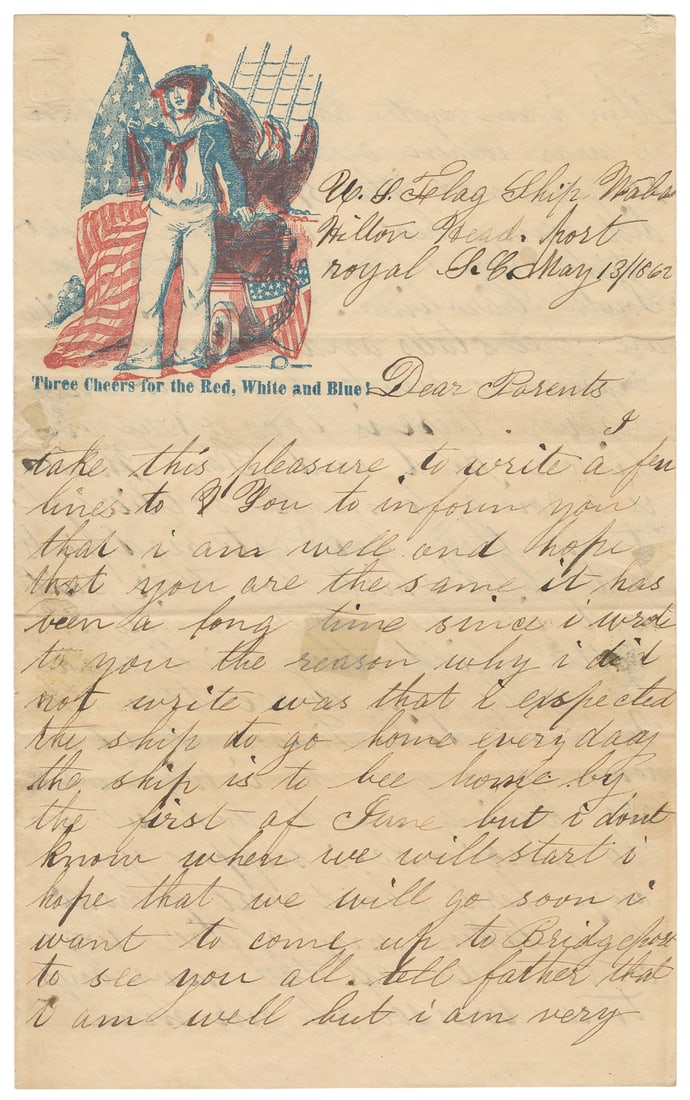 U. S. Flag Ship Waba
Hilton Head. port
royal S. C. May 13/1862
Three Cheers for the Red, White and Blue!
Dear Parents
I
take this pleasure to write a few
lines to You to inform you
that i am well and hope
that you are the same it has
been a long time since i wrote
to you the reason why i did
not write was that i expected
the ship to go home every day
the ship is to bee home by
the first of June but i dont
know when we will start i
hope that we will go soon i
want to come up to Bridgeport
to see you all. tell father that
i am well but i am very